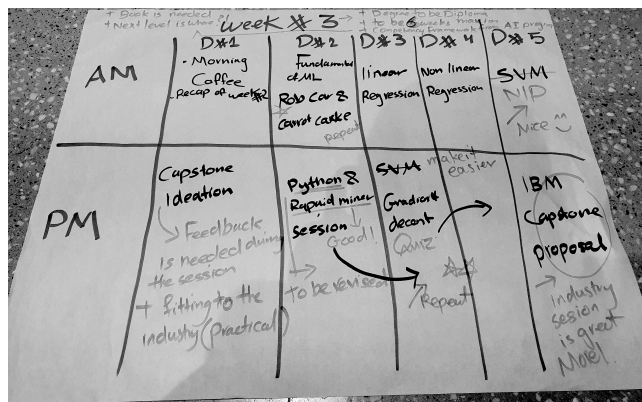 + Book is needed
+ Next level is where?
week # 3
+ Degree to be Diploma
+ to be 6 weeks
+ Competency Framework
AI
D#1
D#2
D#3
D#4
D#5
AM
- Morning
Coffee
- Recap of week#2
Fundamentals
of ML
Rob Car &
Carrot Cake
repeat
linear
Regression
Non linear
Regression
SVM
NLP
Nice
PM
Capstone
Ideation
Feedback
is needed during
the session
+ fitting to the
industry (practical)
Python &
Rapuid miner
session
Good!
to be revised
SVM
Gradient
decent
Quiz
make it
easier
Repeat
IBM
Capstone
proposal
industry
session
is great
More!